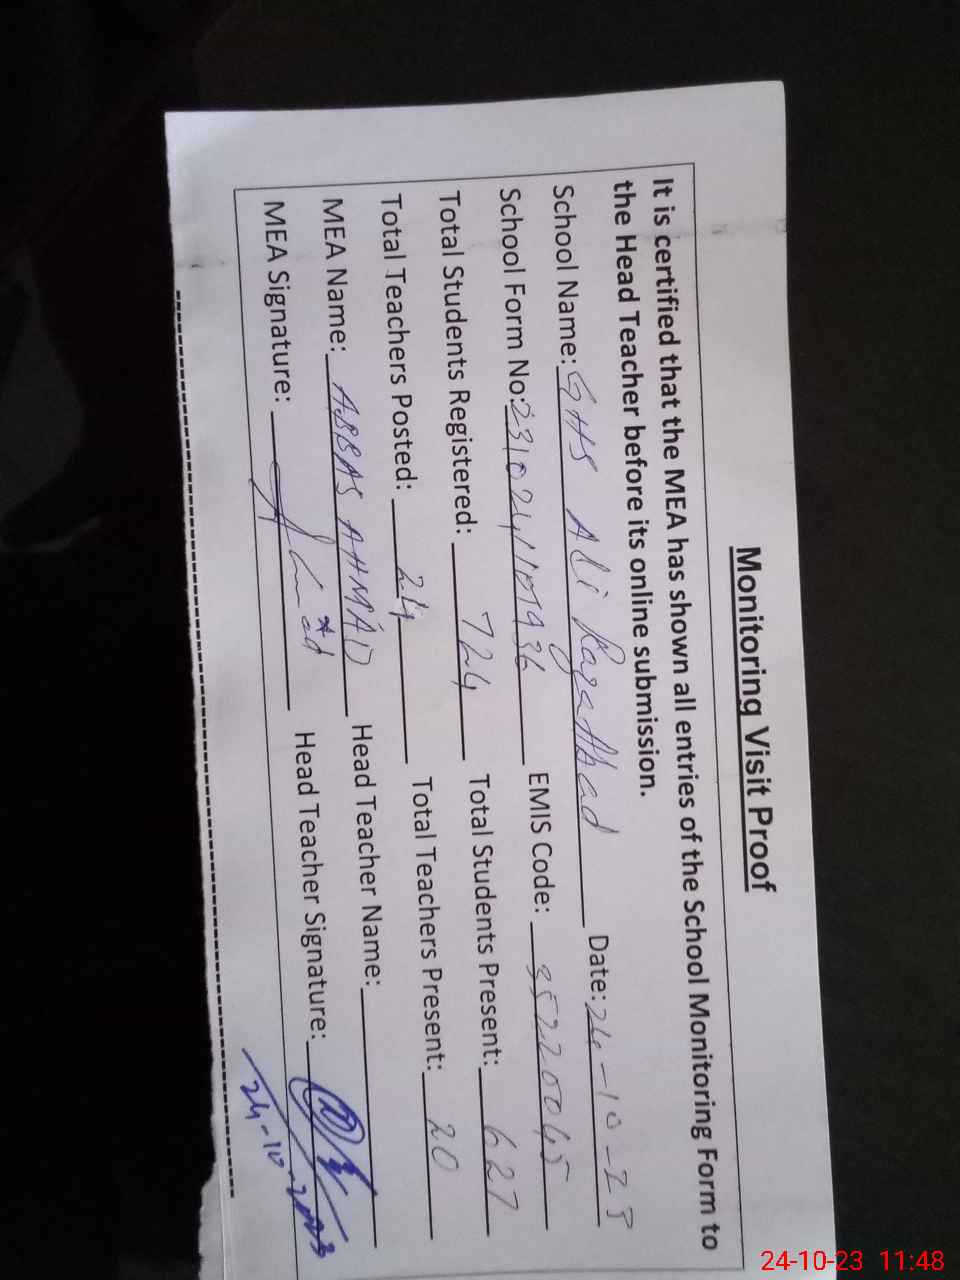 Monitoring Visit Proof
It is certified that the MEA has shown all entries of the School Monitoring Form to
the Head Teacher before its online submission.
School Name: GHS Ali Raza Abad Date: 24-10-23
School Form No: 231024110936 EMIS Code: 35220045
Total Students Registered: 724 Total Students Present: 627
Total Teachers Posted: 24 Total Teachers Present: 20
MEA Name: ABBAS AHMAD Head Teacher Name:
MEA Signature: Head Teacher Signature:
24-10-2023
24-10-23 11:48